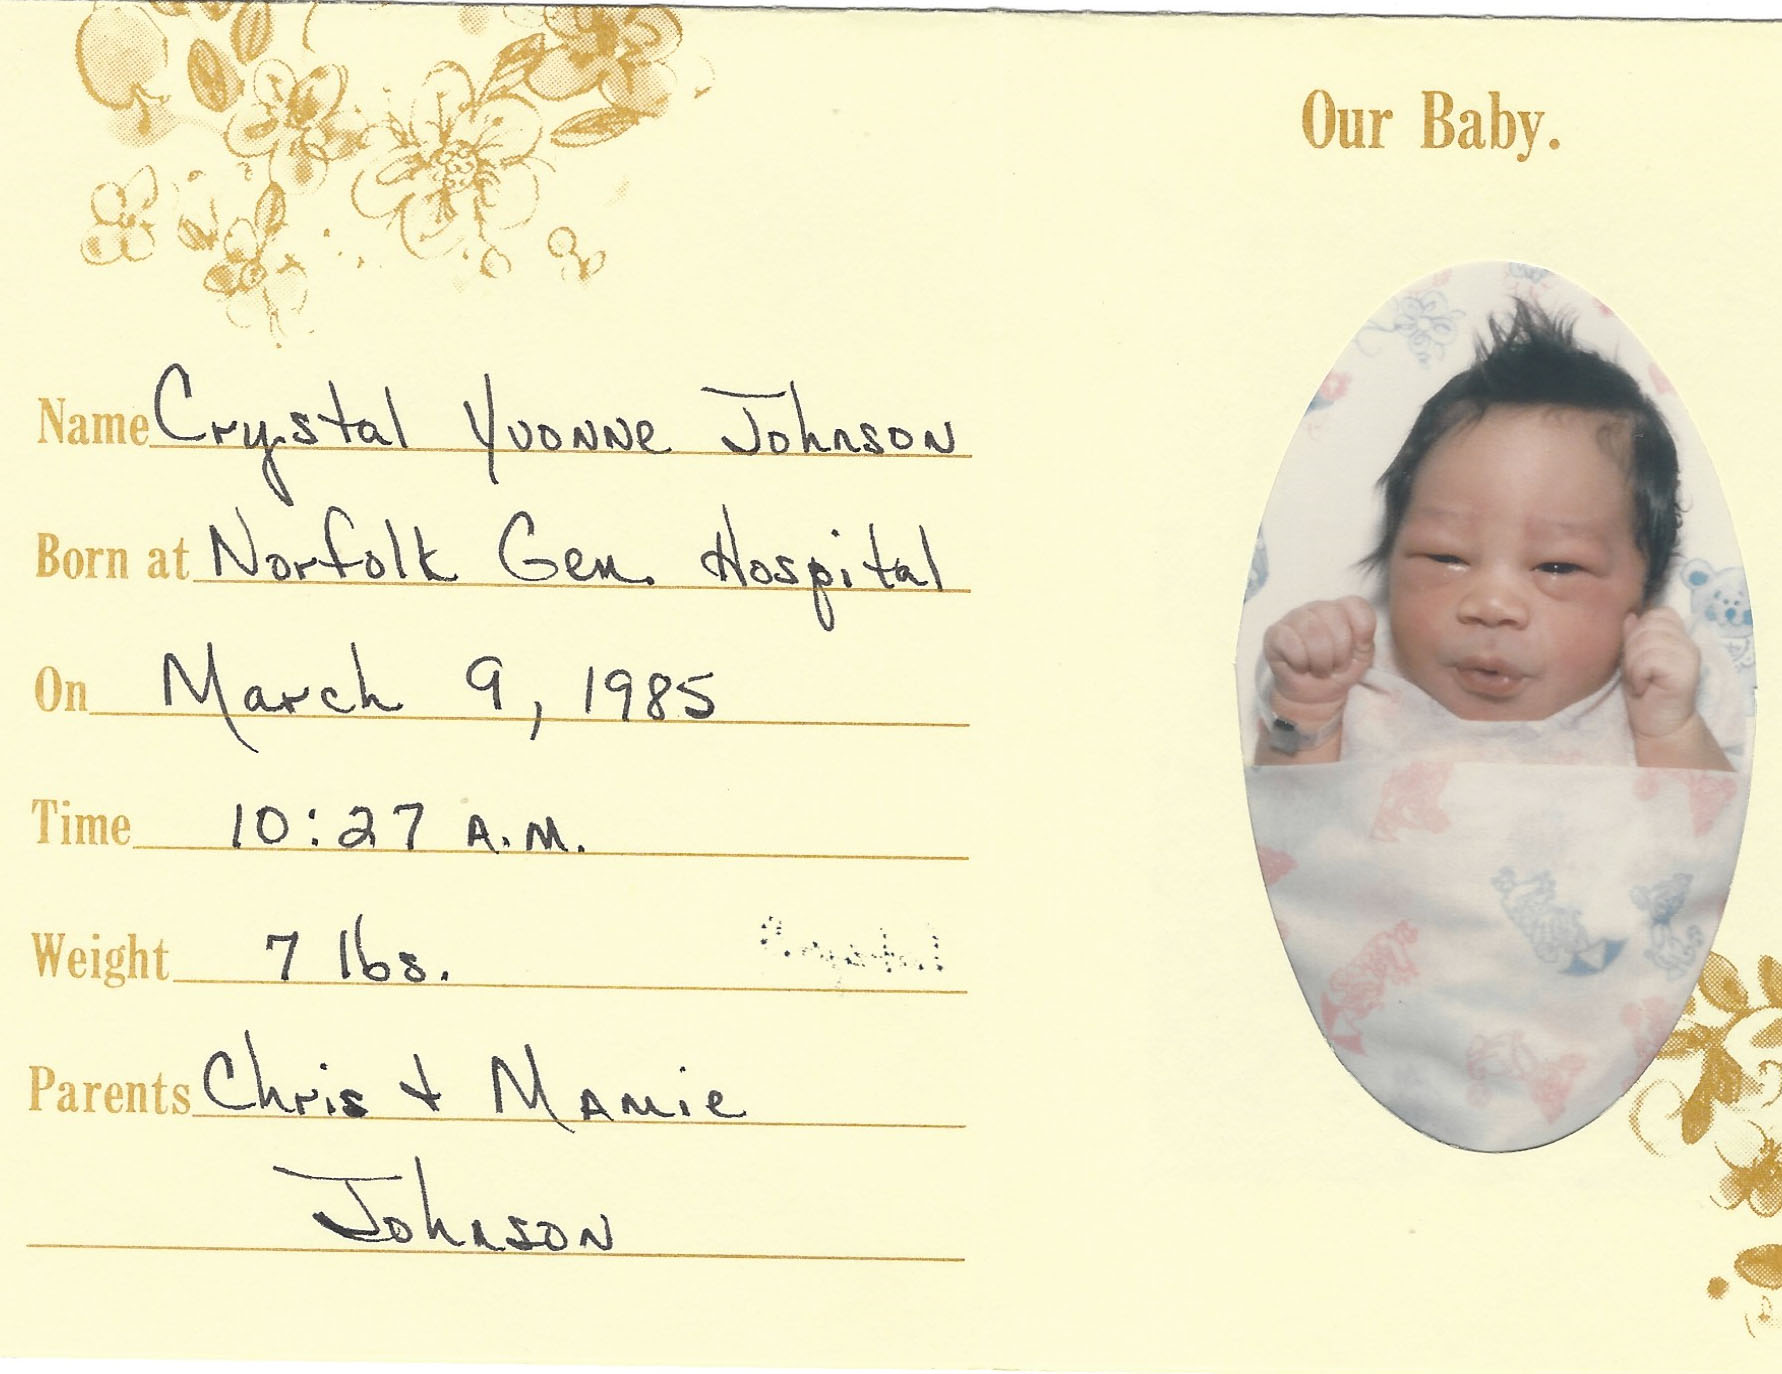 Our Baby.
Name Crystal Yvonne Johnson
Born at Norfolk Gen. Hospital
On March 9, 1985
Time 10:27 A.M.
Weight 7 lbs.
Parents Chris & Mamie
Johnson